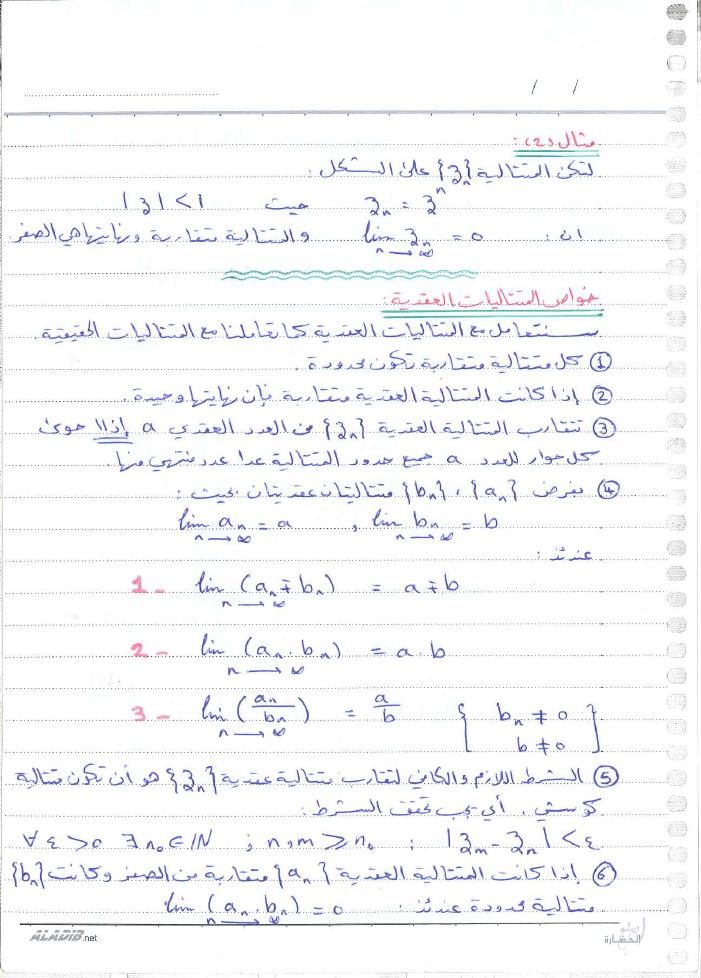 / /
مثال (2):
لتكن المتتالية {z_n} على الشكل:
z_n = z^n حيث |z| < 1
ان: lim_{n→∞} z_n = 0 والمتتالية متقاربة ونهايتها هي الصفر.
خواص المتتاليات العقدية:
سنتعامل مع المتتاليات العقدية كما تعاملنا مع المتتاليات الحقيقية.
① كل متتالية متقاربة تكون محدودة.
② إذا كانت المتتالية العقدية متقاربة فإن نهايتها وحيدة.
③ تتقارب المتتالية العقدية {z_n} من العدد العقدي a إذاا حوى
كل جوار للعدد a جميع حدود المتتالية عدا عدد منتهي منها.
④ بفرض {a_n} ، {b_n} متتاليتان عقديتان بحيث:
lim_{n→∞} a_n = a , lim_{n→∞} b_n = b
عندئذ:
1 - lim_{n→∞} (a_n ∓ b_n) = a ∓ b
2 - lim_{n→∞} (a_n . b_n) = a . b
3 - lim_{n→∞} (a_n / b_n) = a / b { b_n ≠ 0
b ≠ 0 }
⑤ الشرط اللازم والكافي لتقارب متتالية عقدية {z_n} هو أن تكون متتالية
كوشي. أي يجب تحقق الشرط:
∀ ε > 0 ∃ n₀ ∈ IN ; n , m ⩾ n₀ : |z_m - z_n| < ε
⑥ إذا كانت المتتالية العقدية {a_n} متقاربة من الصفر وكانت {b_n}
متتالية محدودة عندئذ: lim_{n→∞} (a_n . b_n) = 0
ALADIB.net
الحضارة